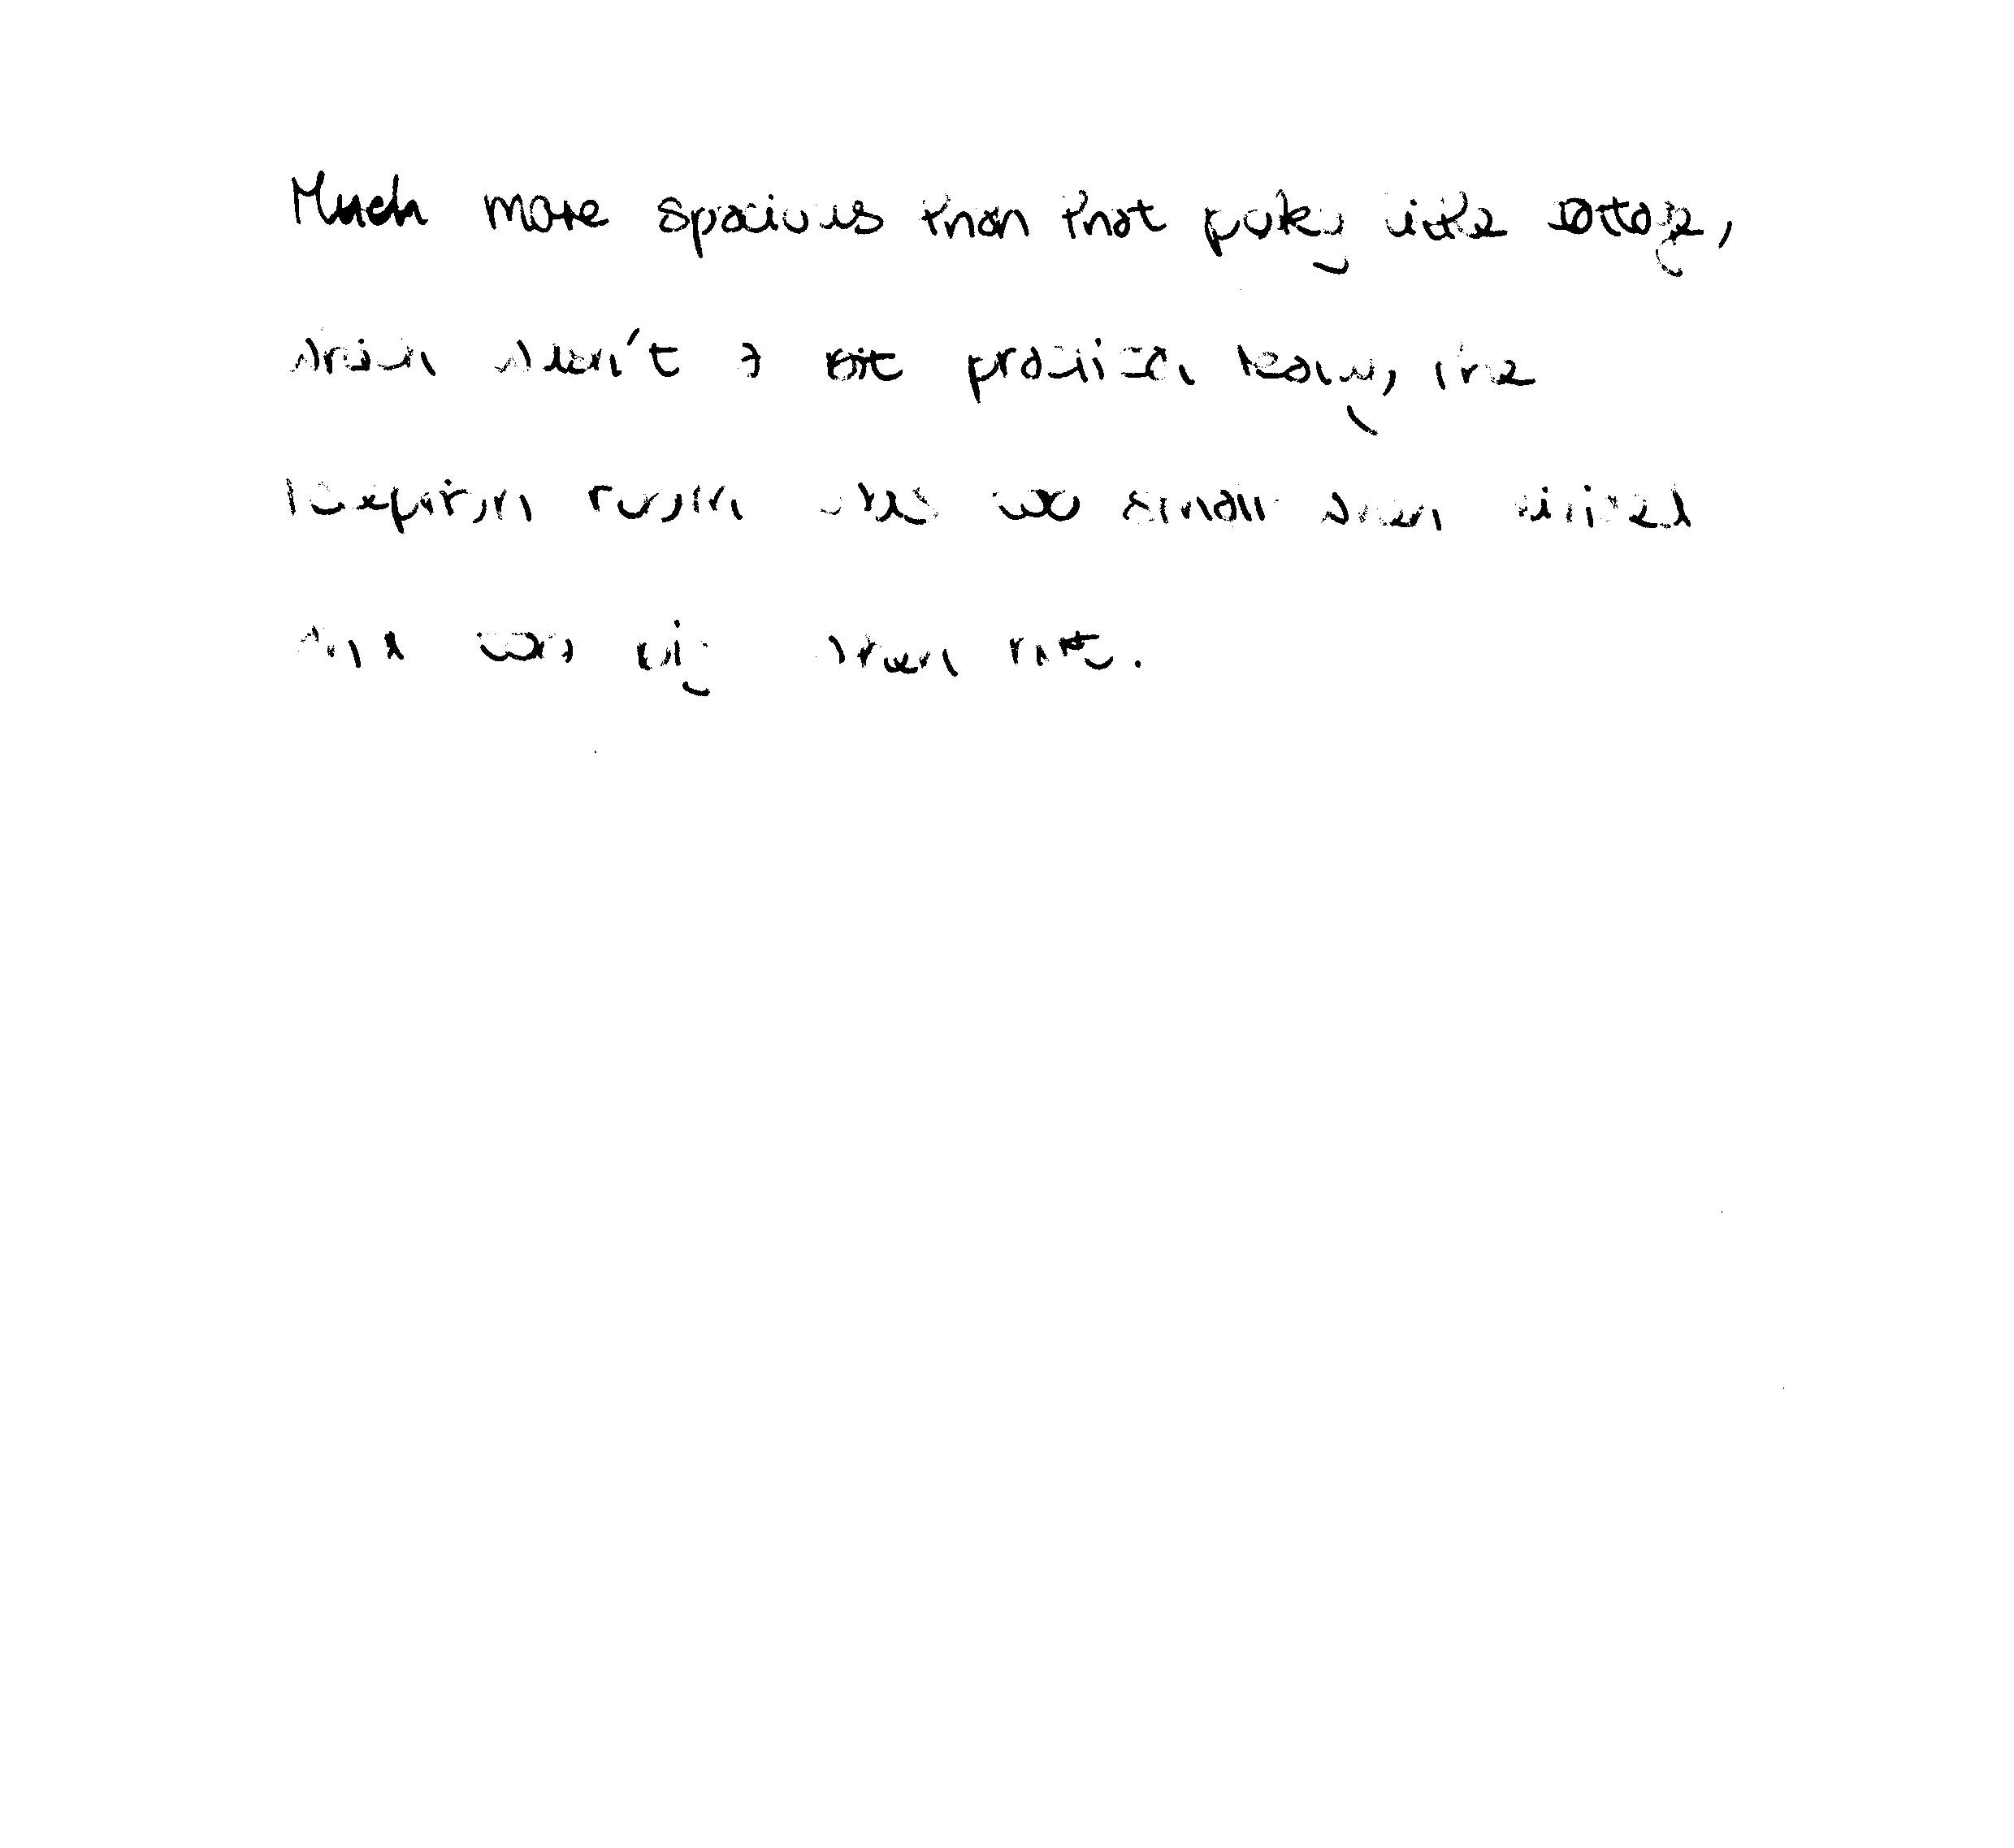 Much more spacious than that poky little cottage,
which wasn't a bit practical really, the
reception room was too small when visited
and was big when not.